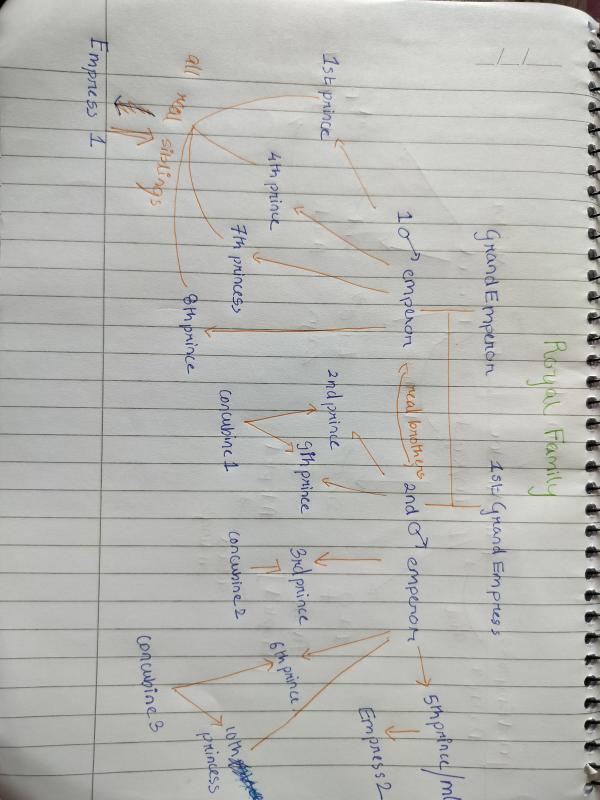 Royal Family
Grand Emperor
1st Grand Empress
1♂ emperor
real brothers
2nd ♂ emperor
5th prince/ml
Empress 2
1st prince
4th prince
7th princess
8th prince
2nd prince
9th prince
concubine 1
3rd prince
concubine 2
6th prince
10th
princess
concubine 3
all real siblings
Empress 1